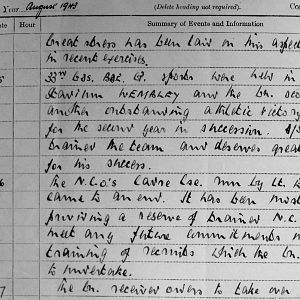 Year August 1943 (Delete heading not required).
Date Hour Summary of Events and Information
Great stress has been laid on this aspect
in recent exercises.
5 33rd Gds. Bde. Gp. sports were held in
Stadium WEMBLEY and the Bn. sco
another outstanding athletic victory
for the second year in succession.
trained the team and deserves great
for his success.
6 The N.C.O's Cadre Cse. run by Lt.
came to an end. It has been most
providing a reserve of trained N.C.
meet any future commitments
training of recruits which the Bn.
to undertake.
7 The Bn. received orders to take over